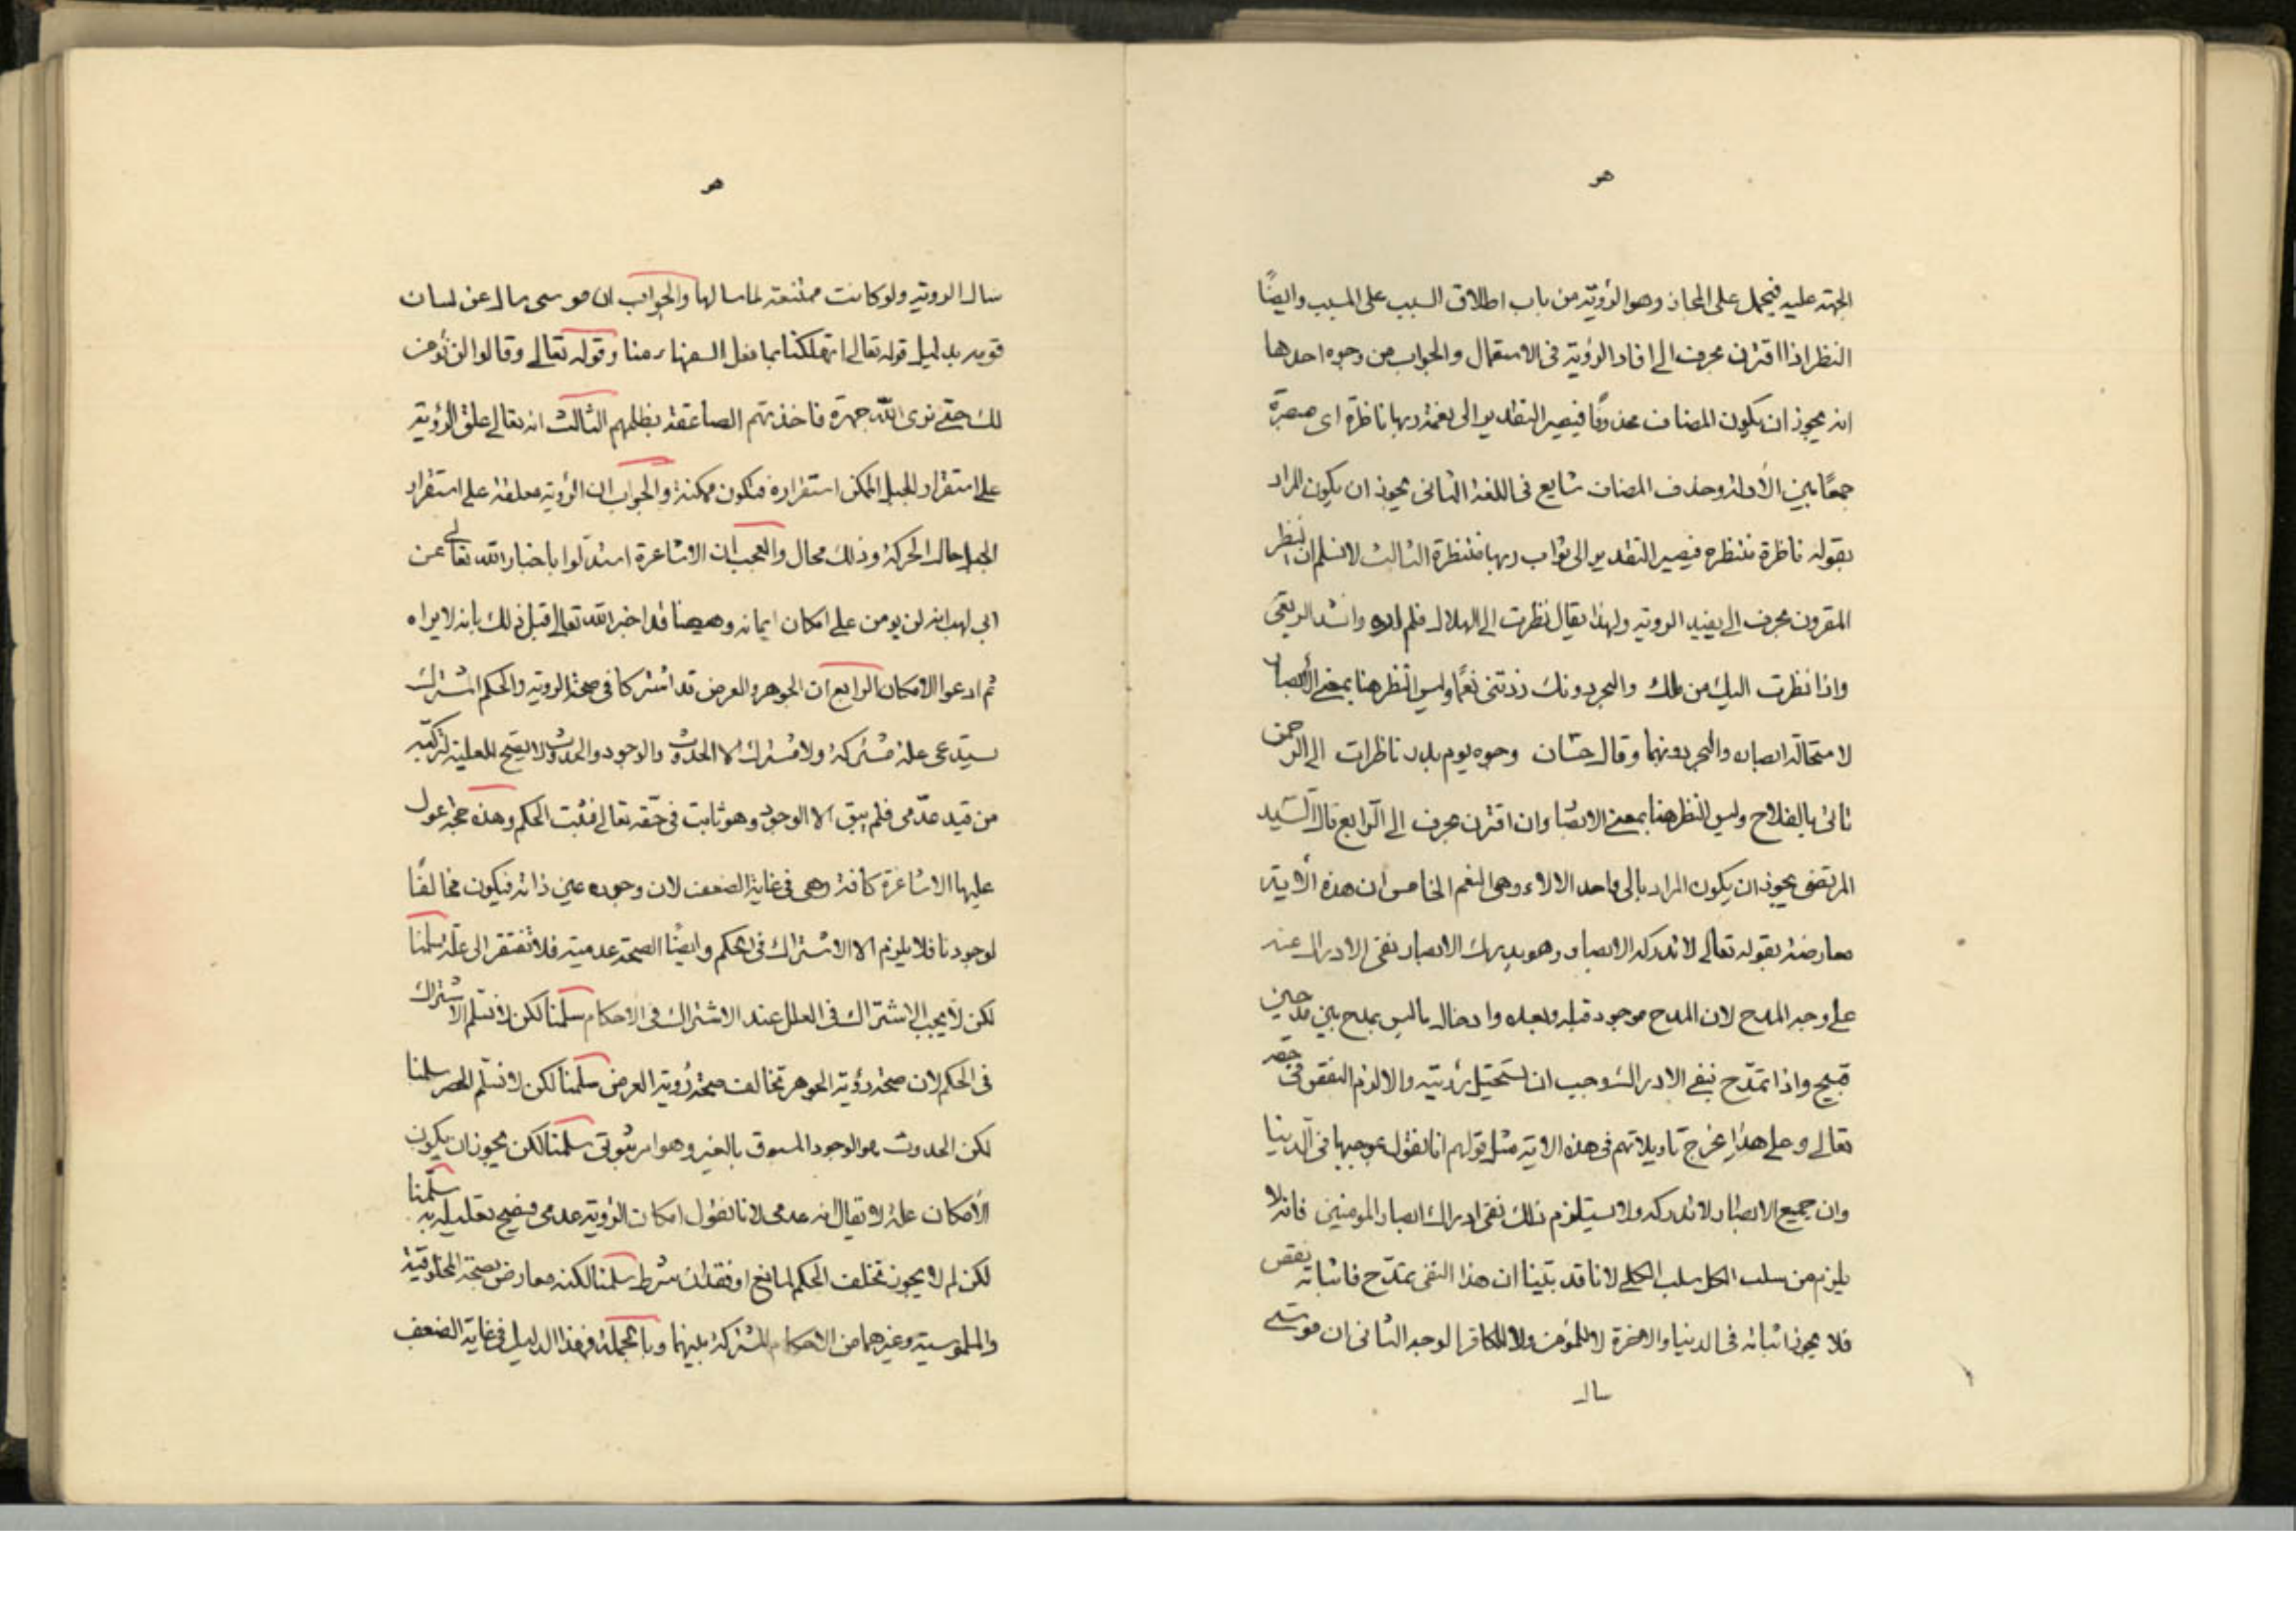 هو
الجهة عليه فيحمل على المجاز وهو الرؤية من باب اطلاق السبب على المسبب وايضًا
النظر اذا اقترن بحرف الى افاد الرؤية فى الاستعمال والجواب من وجوه احدها
انه يجوز ان يكون المضاف محذوفًا فيصير التقدير الى نعمة ربها ناظرة اى مبصرة
جمعًا بين الأدلة وحذف المضاف شايع فى اللغة الثانى يجوز ان يكون المراد
بقوله ناظرة منتظره فيصير التقدير الى ثواب ربها منتظرة الثالث لا نسلم ان النظر
المقرون بحرف الى يفيد الروية ولهذا يقال نظرت الى الهلال فلم اره وانشد الربعى
واذا نظرت اليك من ملك والبحر دونك زدتنى نعمًا وليس النظر هنا بمعنى الأبصار
لاستحالة ابصاره والبحر دونهما وقال حسّان وجوه يوم بدر ناظرات الى الرحمن
تاتى بالفلاح وليس النظر هنا بمعنى الابصار وان اقترن بحرف الى الرابع قال السّيد
المرتضى يجوز ان يكون المراد بالى واحد الالاء وهى النعم الخامس ان هذه الأية
معارضة بقوله تعالى لا تدركه الابصار وهو يدرك الابصار نفى الادراك عنه
على وجه المدح لان المدح موجود قبله وبعده وادخال ماليس بمدح بين مدحين
قبيح واذا تمدّح بنفى الادراك وجب ان تستحيل رؤيته والا لزم النقص فى حقه
تعالى وعلى هذا يخرج تاويلاتهم فى هذه الاية مثل قولهم انا نقول بموجبها فى الدّنيا
وان جميع الابصار لا تدركه ولا يستلزم ذلك نفى ادراك ابصار المومنين فانه لا
يلزم من سلب الكل سلب الكلى لانا قد بيّنا ان هذا النفى تمدّح فاثباته نقص
فلا يجوز اثباته فى الدنيا والاخرة لا للمؤمن ولا للكافر الوجه الثانى ان موسى
سال
هو
سال الروية ولو كانت ممتنعة لما سالها والجواب ان موسى سال عن لسان
قومه بدليل قوله تعالى اتهلكنا بما فعل السفهاء منا وقوله تعالى وقالوا لن نؤمن
لك حتى نرى اللّه جهرة فاخذتهم الصاعقة بظلمهم الثالث انه تعالى علق الرؤية
على استقرار الجبل الممكن استقراره فتكون ممكنة والجواب ان الرؤية معلقة على استقرار
الجبل حال الحركة وذلك محال والعجب ان الاشاعرة استدلّوا باخبار اللّه تعالى عن
ابى لهب انه لن يومن على امكان ايمانه وهيهنا قد اخبر اللّه تعالى قبل ذلك بانه لا يراه
ثم ادعوا الامكان الرابع ان الجوهر والعرض قد اشتركا فى صحة الروية والحكم المشترك
يستدعى علة مشتركة ولا مشترك الا الحدوث والوجود والحدوث لا يصح للعلية لتركّبه
من قيد عدّمى فلم يبق الا الوجود وهو ثابت فى حقه تعالى فثبت الحكم وهذه حجة عول
عليها الاشاعرة كافة وهى فى غاية الضعف لان وجوده عين ذاته فيكون مخالفًا
لوجودنا فلا يلزم الا الاشتراك فى الحكم وايضًا الصحة عدمية فلا تفتقر الى علّة سلّمنا
لكن لا يجب الاشتراك فى العلل عند الاشتراك فى الاحكام سلّمنا لكن لا نسلم الاشتراك
فى الحكم لان صحة رؤية الجوهر تخالف صحة رؤية العرض سلّمنا لكن لا نسلّم الحصر سلمنا
لكن الحدوث هو الوجود المسبوق بالغير وهو امر ثبوتى سلّمنا لكن يجوز ان يكون
الأمكان علة لا يقال انه عدمى لانا نقول امكان الرؤية عدمى فيصح تعليله به سلّمنا
لكن لم لا يجوز تخلف الحكم لمانع او فقدان شرط سلّمنا لكنه معارض بصحة المخلوقية
والملموسية وغيرهما من الاحكام المشتركة بينهما وبالجملة فهذا الدليل فى غاية الضعف